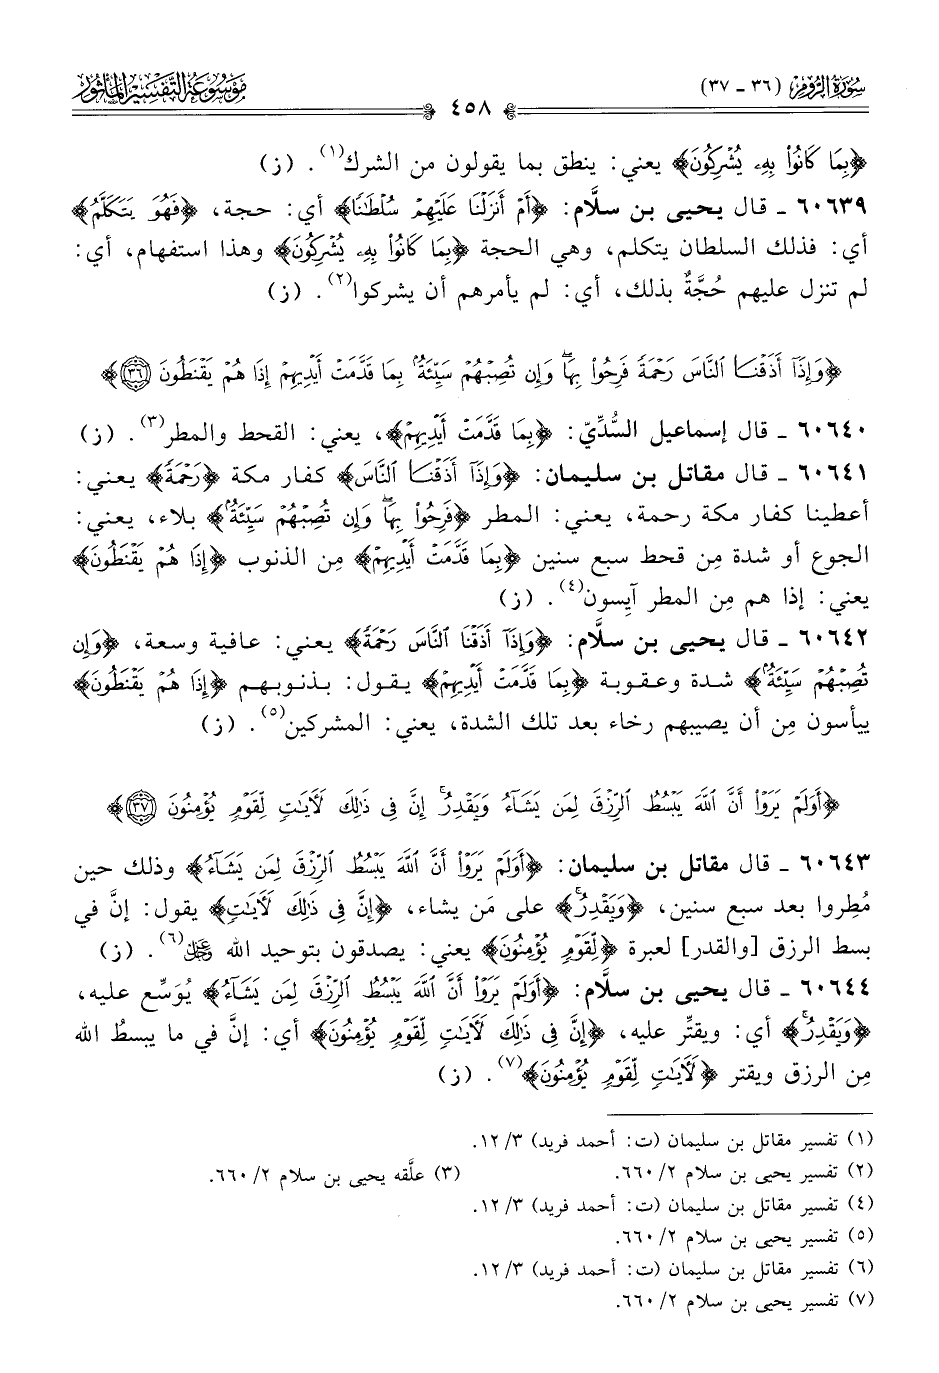 سُورَةُ الرُّومِ (٣٦ - ٣٧)
٤٥٨
مَوْسُوعَةُ التَّفْسِيرِ المَأْثُورِ
﴿بِمَا كَانُوا۟ بِهِۦ يُشْرِكُونَ﴾ يعني: ينطق بما يقولون من الشرك(١). (ز)
٦٠٦٣٩ ـ قال يحيى بن سلَّام: ﴿أَمْ أَنزَلْنَا عَلَيْهِمْ سُلْطَٰنًا﴾ أي: حجة، ﴿فَهُوَ يَتَكَلَّمُ﴾
أي: فذلك السلطان يتكلم، وهي الحجة ﴿بِمَا كَانُوا۟ بِهِۦ يُشْرِكُونَ﴾ وهذا استفهام، أي:
لم تنزل عليهم حُجَّةٌ بذلك، أي: لم يأمرهم أن يشركوا(٢). (ز)
﴿وَإِذَآ أَذَقْنَا ٱلنَّاسَ رَحْمَةً فَرِحُوا۟ بِهَا ۖ وَإِن تُصِبْهُمْ سَيِّئَةٌۢ بِمَا قَدَّمَتْ أَيْدِيهِمْ إِذَا هُمْ يَقْنَطُونَ ٣٦﴾
٦٠٦٤٠ ـ قال إسماعيل السُّدِّيّ: ﴿بِمَا قَدَّمَتْ أَيْدِيهِمْ﴾، يعني: القحط والمطر(٣). (ز)
٦٠٦٤١ ـ قال مقاتل بن سليمان: ﴿وَإِذَآ أَذَقْنَا ٱلنَّاسَ﴾ كفار مكة ﴿رَحْمَةً﴾ يعني:
أعطينا كفار مكة رحمة، يعني: المطر ﴿فَرِحُوا۟ بِهَا ۖ وَإِن تُصِبْهُمْ سَيِّئَةٌۢ﴾ بلاء، يعني:
الجوع أو شدة مِن قحط سبع سنين ﴿بِمَا قَدَّمَتْ أَيْدِيهِمْ﴾ مِن الذنوب ﴿إِذَا هُمْ يَقْنَطُونَ﴾
يعني: إذا هم مِن المطر آيِسون(٤). (ز)
٦٠٦٤٢ ـ قال يحيى بن سلَّام: ﴿وَإِذَآ أَذَقْنَا ٱلنَّاسَ رَحْمَةً﴾ يعني: عافية وسعة، ﴿وَإِن
تُصِبْهُمْ سَيِّئَةٌۢ﴾ شدة وعقوبة ﴿بِمَا قَدَّمَتْ أَيْدِيهِمْ﴾ يقول: بذنوبهم ﴿إِذَا هُمْ يَقْنَطُونَ﴾
ييأسون مِن أن يصيبهم رخاء بعد تلك الشدة، يعني: المشركين(٥). (ز)
﴿أَوَلَمْ يَرَوْا۟ أَنَّ ٱللَّهَ يَبْسُطُ ٱلرِّزْقَ لِمَن يَشَآءُ وَيَقْدِرُ ۚ إِنَّ فِى ذَٰلِكَ لَءَايَٰتٍ لِّقَوْمٍ يُؤْمِنُونَ ٣٧﴾
٦٠٦٤٣ ـ قال مقاتل بن سليمان: ﴿أَوَلَمْ يَرَوْا۟ أَنَّ ٱللَّهَ يَبْسُطُ ٱلرِّزْقَ لِمَن يَشَآءُ﴾ وذلك حين
مُطروا بعد سبع سنين، ﴿وَيَقْدِرُ ۚ﴾ على مَن يشاء، ﴿إِنَّ فِى ذَٰلِكَ لَءَايَٰتٍ﴾ يقول: إنَّ في
بسط الرزق [والقدر] لعبرة ﴿لِّقَوْمٍ يُؤْمِنُونَ﴾ يعني: يصدقون بتوحيد الله عز وجل(٦). (ز)
٦٠٦٤٤ ـ قال يحيى بن سلَّام: ﴿أَوَلَمْ يَرَوْا۟ أَنَّ ٱللَّهَ يَبْسُطُ ٱلرِّزْقَ لِمَن يَشَآءُ﴾ يُوَسِّع عليه،
﴿وَيَقْدِرُ ۚ﴾ أي: ويقتِّر عليه، ﴿إِنَّ فِى ذَٰلِكَ لَءَايَٰتٍ لِّقَوْمٍ يُؤْمِنُونَ﴾ أي: إنَّ في ما يبسطُ الله
مِن الرزق ويقتر ﴿لَءَايَٰتٍ لِّقَوْمٍ يُؤْمِنُونَ﴾(٧). (ز)
(١) تفسير مقاتل بن سليمان (ت: أحمد فريد) ١٢/٣.
(٢) تفسير يحيى بن سلام ٦٦٠/٢. (٣) علَّقه يحيى بن سلام ٦٦٠/٢.
(٤) تفسير مقاتل بن سليمان (ت: أحمد فريد) ١٢/٣.
(٥) تفسير يحيى بن سلام ٦٦٠/٢.
(٦) تفسير مقاتل بن سليمان (ت: أحمد فريد) ١٢/٣.
(٧) تفسير يحيى بن سلام ٦٦٠/٢.